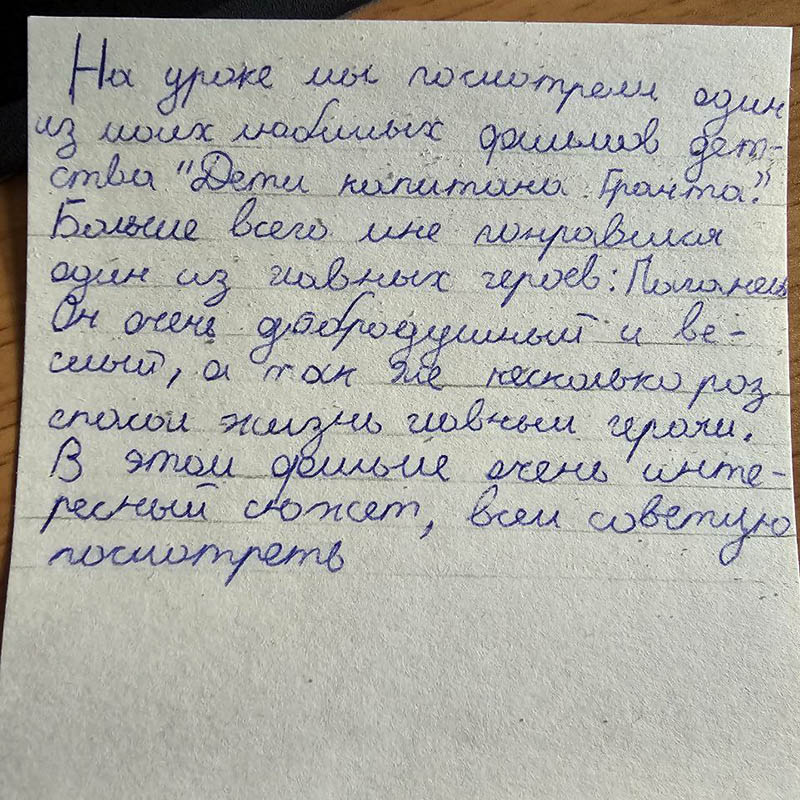 На уроке мы посмотрели один
из моих любимых фильмов дет-
ства "Дети капитана Гранта".
Больше всего мне понравился
один из главных героев: Паганель
Он очень добродушный и ве-
слый, а так же несколько раз
спасал жизнь главным героям.
В этом фильме очень инте-
ресный сюжет, всем советую
посмотреть